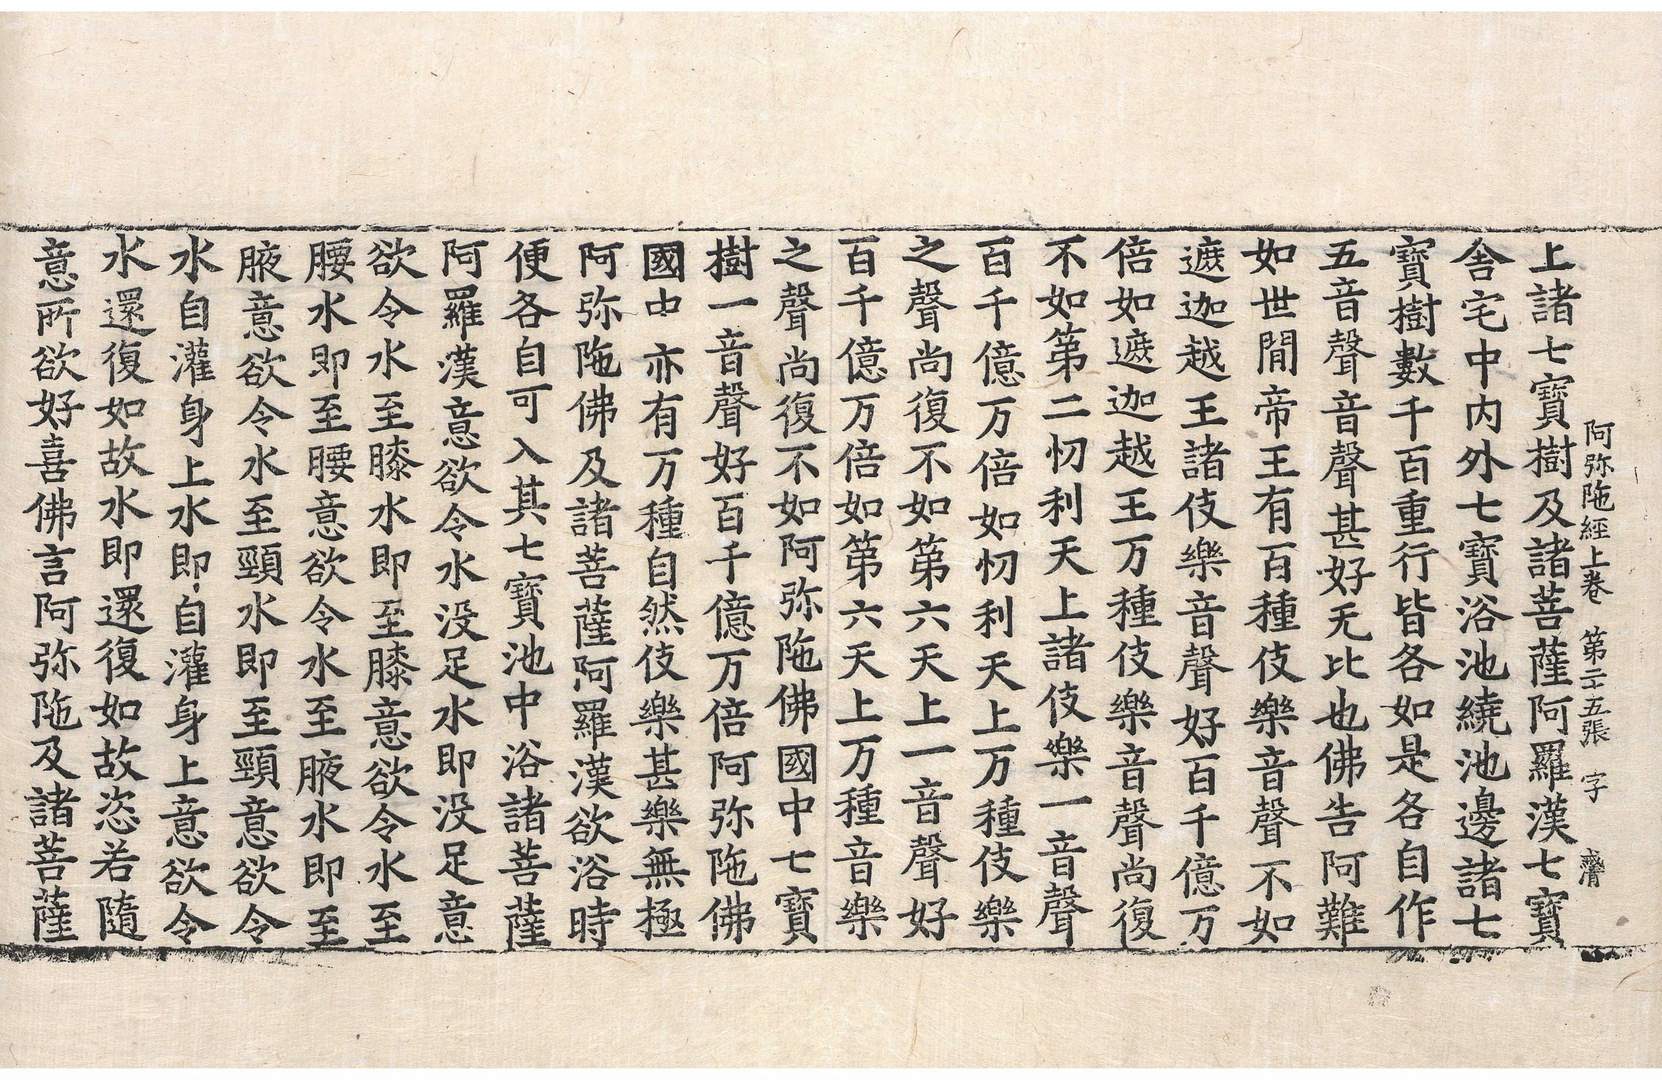 阿弥陁經上卷　第二十五張　字　齊
上諸七寶樹及諸菩薩阿羅漢七寶
舍宅中內外七寶浴池繞池邊諸七
寶樹數千百重行皆各如是各自作
五音聲音聲甚好无比也佛告阿難
如世間帝王有百種伎樂音聲不如
遮迦越王諸伎樂音聲好百千億万
倍如遮迦越王万種伎樂音聲尚復
不如第二忉利天上諸伎樂一音聲
百千億万倍如忉利天上万種伎樂
之聲尚復不如第六天上一音聲好
百千億万倍如第六天上万種音樂
之聲尚復不如阿弥陁佛國中七寶
樹一音聲好百千億万倍阿弥陁佛
國中亦有万種自然伎樂甚樂無極
阿弥陁佛及諸菩薩阿羅漢欲浴時
便各自可入其七寶池中浴諸菩薩
阿羅漢意欲令水没足水即没足意
欲令水至膝水即至膝意欲令水至
腰水即至腰意欲令水至腋水即至
腋意欲令水至頸水即至頸意欲令
水自灌身上水即自灌身上意欲令
水還復如故水即還復如故恣若隨
意所欲好喜佛言阿弥陁及諸菩薩